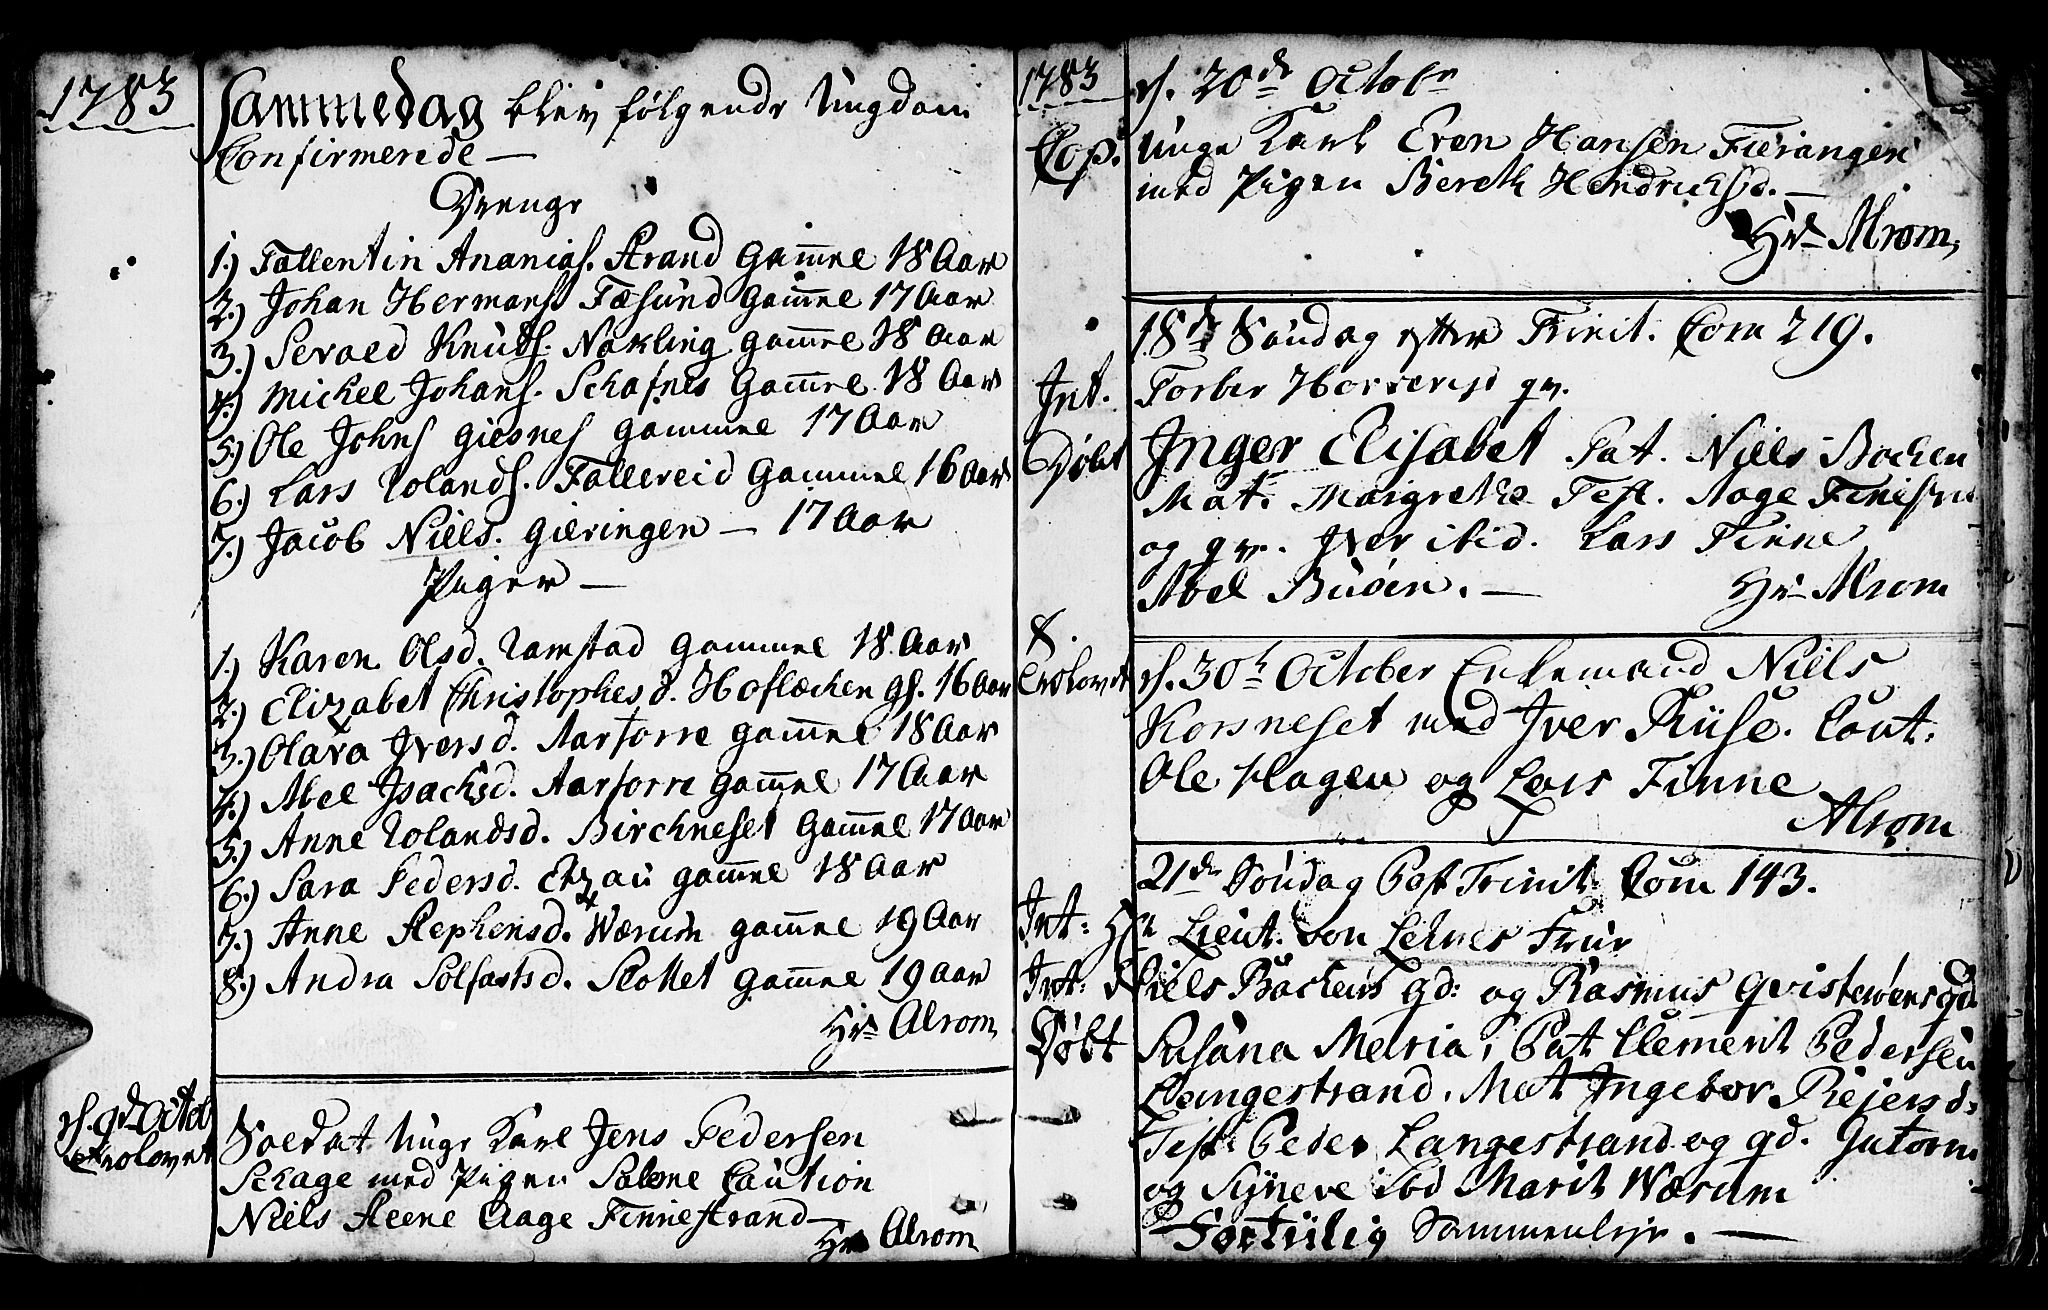 1783
Sammedag blev følgende Ungdom
Confirmerede —
Drenge
1.) Fallentin Ananias. Strand Gammel 18 Aar
2.) Johan Hermans. Fæsund Gammel 17 Aar
3.) Sevald Knuds. Nøkling gammel 18 Aar
4.) Michel Johans. Schafnes Gammel 18 Aar
5.) Ole Johns Giesnes gammel 17 Aar
6.) Lars Rolands. Fallereid Gammel 16 Aar
7.) Jacob Niels. Gieringen — 17 Aar
Piger —
1.) Karen Olsd. Ramstad gammel 18 Aar
2.) Elizabet Christophesd. Hoflæchen gl. 16 Aar
3.) Olava Iversd. Aarforre gammel 18 Aar
4.) Abel Isachsd. Aarforre gammel 17 Aar
5.) Anne Rolandsd. Birchneset Gammel 17 Aar
6.) Sara Pedersd. gammel 18 Aar
7.) Anne Stephensd. Wærum gammel 19 Aar
8.) Andra Solfastsd. Slottet gammel 19 Aar
Hr. Alrom
d. 9de Octob
Trolovet
Soldat Unge Karl Jens Pedersen
Schage med Pigen Salome Caution
Niels Steene Aage Finnestrand —
Hr Alrom
1783
d. 20de Octobr
Cop. Unge Karl Even Hansen Fieranger
med Pigen Bereth Hendrichsd. —
Hr Alrom,
18de Søndag efter Trinit. Com 219.
Int. Torber Horrerejd qv.
Døbt Inger Elisabet Pat. Niels Bochen
Mat. Margrethe Test. Aage Finis
og qv. Iver ibid. Lars Finne
Abel Buöen. — Hr Alrom
Trolovet d. 30te October Enkemand Niels
Korsneset med Iver Ruse. Caut.
Ole Hagen og Lars Finne
Alrom
21de Søndag Post Trinit. Com 143.
Int: Hr Lieut. von Frue
Int. Niels Bachens qd: og Rasmus
Døbt Susana Maria, Pat Clement Pedersen
Langestrand. Mat Ingebor Rejersd.
Test. Peder Langestrand og qd. Gutorm
og Syneve ibd Marit Wærum
Fortiilig Sammenleje. —